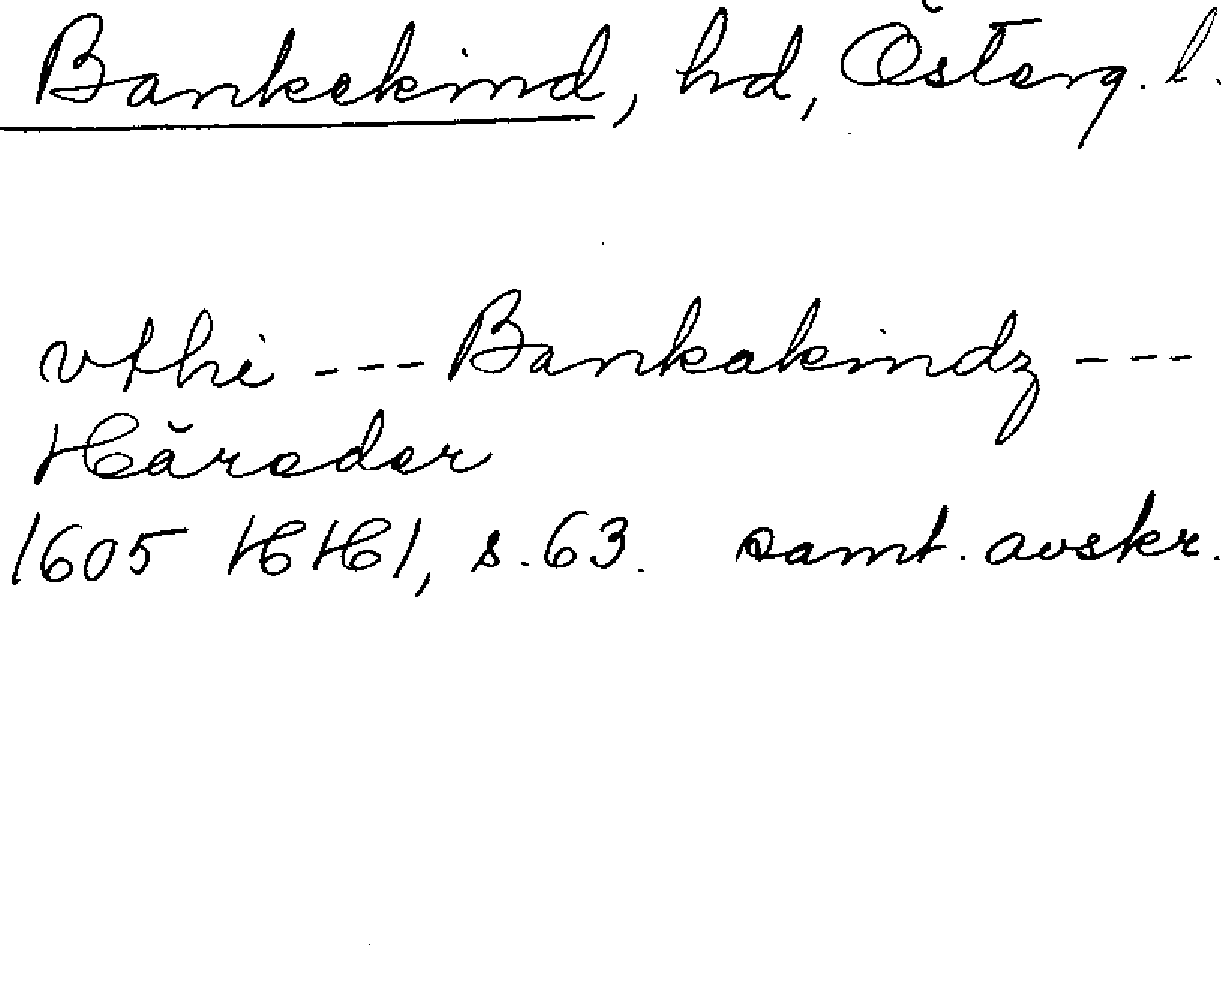 Bankekind, hd, Österg. l.
vthi --- Bankakindz ---
Häreder
1605 HH1, s. 63. samt. avskr.